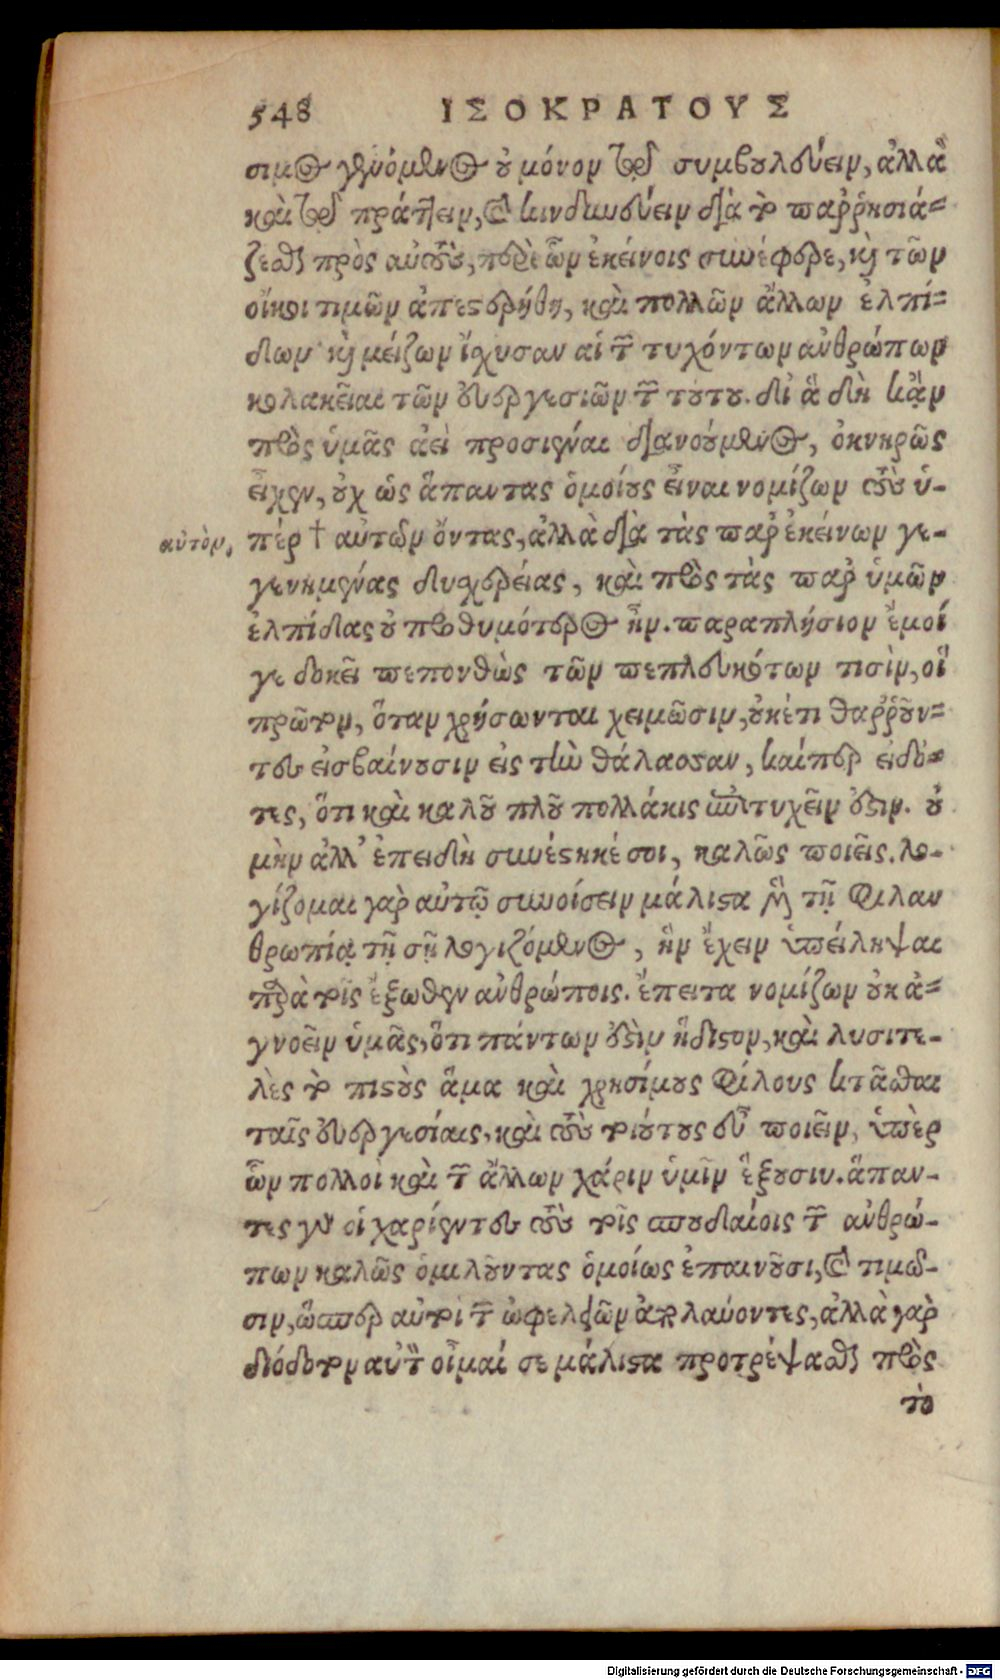 548 ΙΣΟΚΡΑΤΟΥΣ
σιμος γενόμενος ου μόνον τῷ συμβουλεύειν, ἀλλὰ
καὶ τῷ πράττειν, καὶ κινδυνεύειν διὰ τὸ παῤῥησιά-
ζεσθαι πρὸς αὐτοὺς, περὶ ὧν ἐκείνοις συνέφερε, καὶ τῶν
οἴκοι τιμῶν ἀπεστερήθη, καὶ πολλῶν ἄλλων ἐλπί-
δων· καὶ μείζων ἴσχυσαν αἱ τῶν τυχόντων ἀνθρώπων
κολακεῖαι τῶν εὐεργεσιῶν τῶν τούτου. δι' ἃ δὴ κἂν
πρὸς ὑμᾶς ἀεὶ προσιέναι διανούμενος, ὀκνηρῶς
εἶχεν, οὐχ ὡς ἅπαντας ὁμοίους εἶναι νομίζων τοὺς ὑ-
πέρ † αὐτῶν ὄντας, ἀλλὰ διὰ τὰς παρ' ἐκείνων γε-
αὐτὸν.
γενημένας δυσχερείας, καὶ πρὸς τὰς παρ' ὑμῶν
ἐλπίδας οὐ προθυμότερος ἦν. παραπλήσιον ἔμοί
γε δοκεῖ πεπονθὼς τῶν πεπλευκότων τισὶν, οἳ
πρῶτον, ὅταν χρήσωνται χειμῶσιν, οὐκέτι θαῤῥοῦν-
τες εἰσβαίνουσιν εἰς τὴν θάλασσαν, καίπερ εἰδό-
τες, ὅτι καὶ καλοῦ πλοῦ πολλάκις ἐπιτυχεῖν ἔστιν. οὐ
μὴν ἀλλ' ἐπειδὴ συνέστηκέ σοι, καλῶς ποιεῖς. λο-
γίζομαι γὰρ αὐτῷ συνοίσειν μάλιστα μὲν τῇ φιλαν
θρωπίᾳ τῇ σῇ λογιζόμενος, ἣν ἔχειν ὑπείληψαι
παρὰ τοῖς ἔξωθεν ἀνθρώποις. ἔπειτα νομίζων οὐκ ἀ-
γνοεῖν ὑμᾶς, ὅτι πάντων ἐστὶν ἥδιστον, καὶ λυσιτε-
λὲς τὸ πιστοὺς ἅμα καὶ χρησίμους φίλους κτᾶσθαι
ταῖς εὐεργεσίαις, καὶ τοὺς τοιούτους εὖ ποιεῖν, ὑπὲρ
ὧν πολλοὶ καὶ τῶν ἄλλων χάριν ὑμῖν ἕξουσιν. ἅπαν-
τες γὰρ οἱ χαρίεντες τοὺς τοῖς σπουδαίοις τῶν ἀνθρώ-
πων καλῶς ὁμιλοῦντας ὁμοίως ἐπαινοῦσι, καὶ τιμῶ-
σιν, ὥσπερ αὐτοὶ τῶν ὠφελειῶν ἀπολαύοντες, ἀλλὰ γὰρ
διόδοτον αὐτὸν οἶμαί σε μάλιστα προτρέψασθαι πρὸς
τὸ
Digitalisierung gefördert durch die Deutsche Forschungsgemeinschaft - DFG